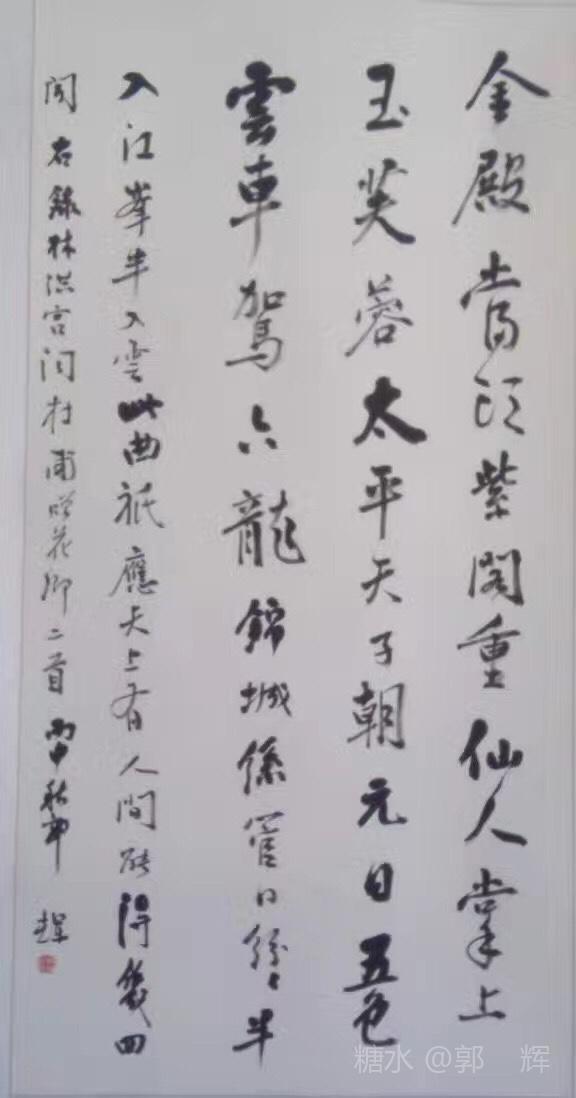 金殿當頭紫閣重仙人掌上
玉芙蓉太平天子朝元日五色
雲車駕六龍錦城絲管日紛々半
入江峯半入雲此曲祇應天上有人間能得幾回
聞右錄林洪宮詞杜甫贈花卿二首 丙申秋
糖水 @郭 辉